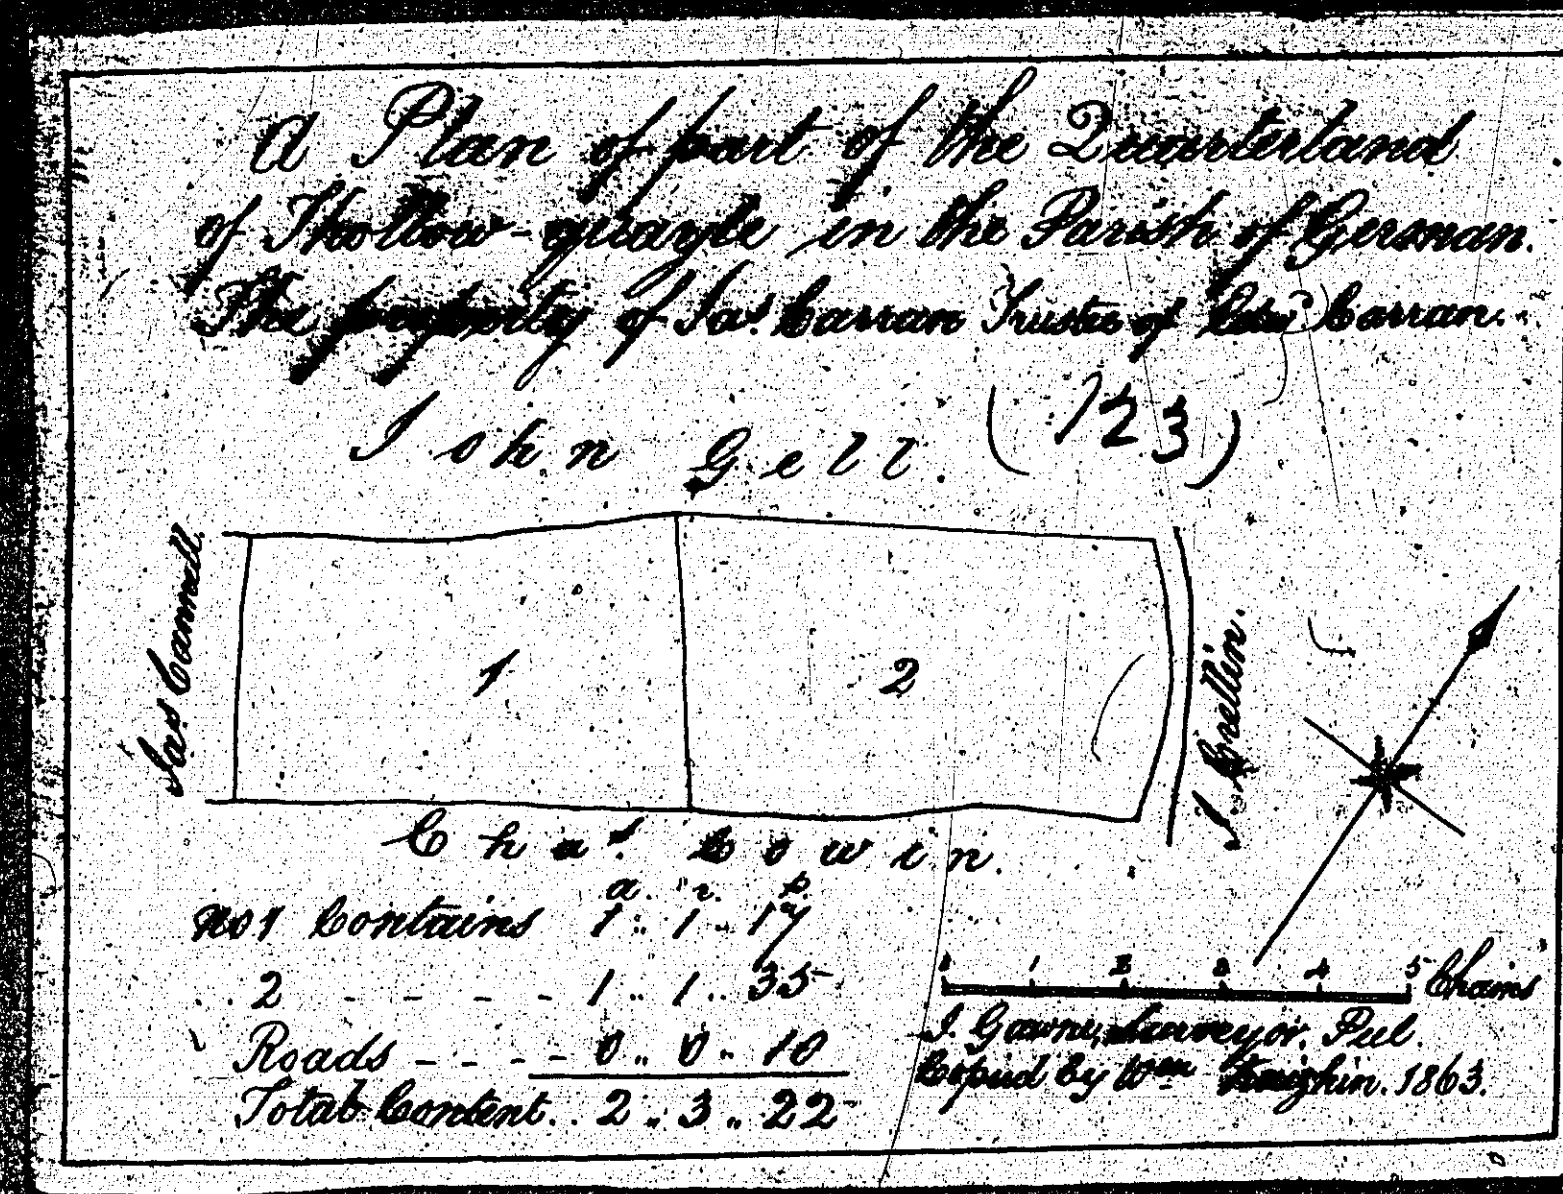 A Plan of part of the Quarterland
of Khollow-quayle in the Parish of German.
The property of Jas. Carran Trustee of Carran.
John Gell. (123)
Jas. Cannell
1
2
J. Grellin.
Chas. Cowin.
a. r. p.
No 1 Contains 1 .. 1 .. 17
.. 2 - - - - 1 .. 1 .. 35
Roads - - - - 0 .. 0 .. 10
Total Content .. 2 .. 3 .. 22
0 1 2 3 4 5 Chains
J. Gawne, Surveyor. Peel.
Copied by Wm 1863.